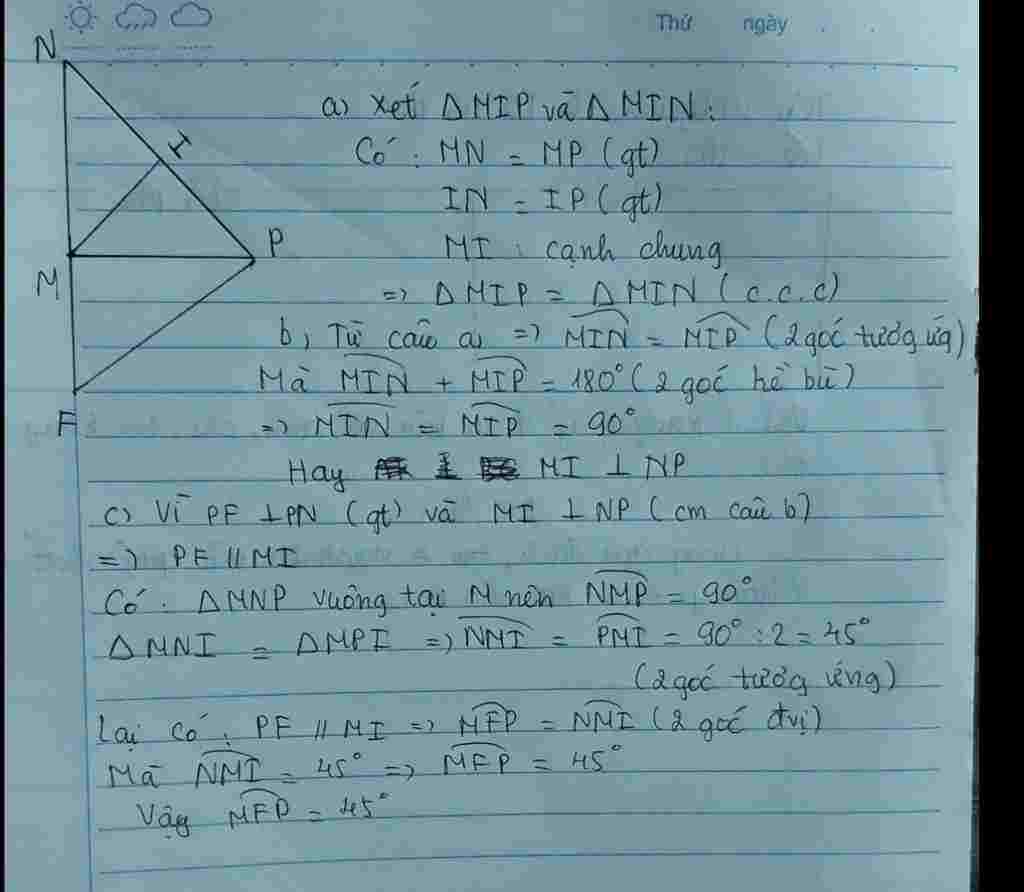 Thứ ngày . .
N
I
P
M
F
a) Xét ΔMIP và ΔMIN:
Có: MN = MP (gt)
IN = IP (gt)
MI : cạnh chung
=> ΔMIP = ΔMIN (c.c.c)
b, Từ câu a, => MIN = MIP (2 góc tương ứg)
Mà MIN + MIP = 180° (2 góc kề bù)
=> MIN = MIP = 90°
Hay MI ⊥ NP
c) Vì PF ⊥ PN (gt) và MI ⊥ NP (cm câu b)
=> PF // MI
Có: ΔMNP vuông tại M nên NMP = 90°
ΔMNI = ΔMPI => NMI = PMI = 90° : 2 = 45°
(2 góc tương ứng)
Lại có: PF // MI => MFP = NMI (2 góc đvị)
Mà NMI = 45° => MFP = 45°
Vậy MFP = 45°